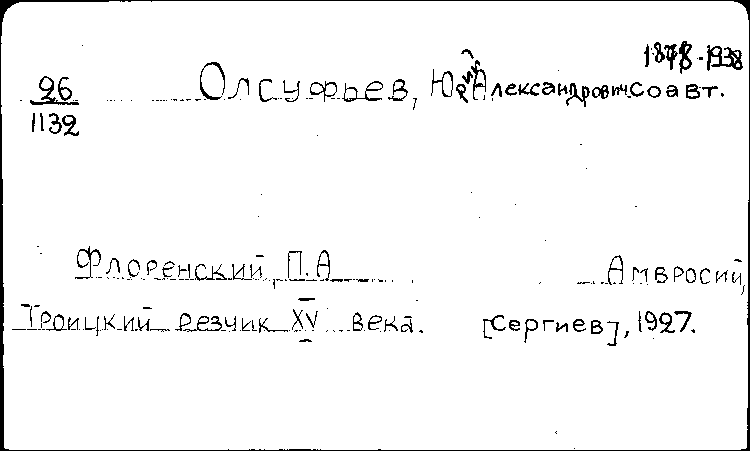 1878-1938
26 Олсуфьев, Юрий Александрович соавт.
1132
Флоренский, П.А Амвросий,
Троицкий резчик XV века. [Сергиев], 1927.